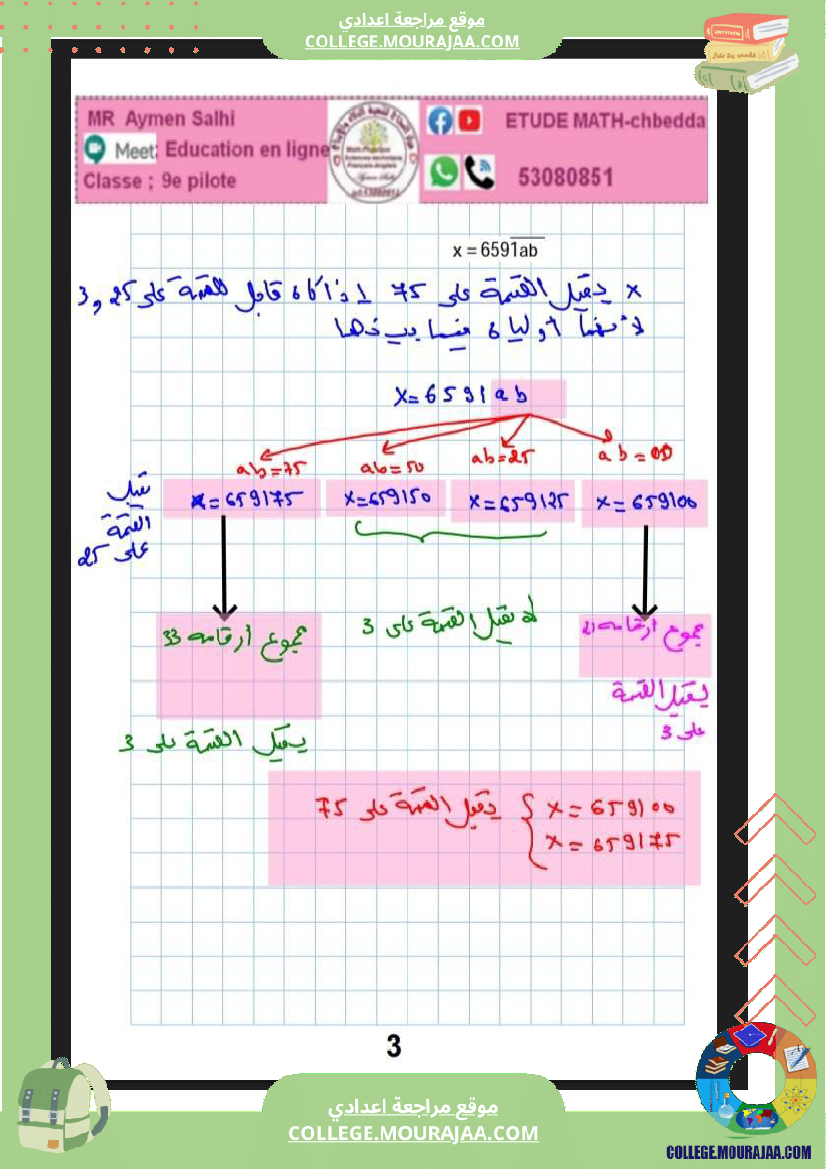 موقع مراجعة اعدادي
COLLEGE.MOURAJAA.COM
MR Aymen Salhi
Meet: Education en ligne
Classe ; 9e pilote
ETUDE MATH-chbedda
53080851
x = 6591ab
x يقبل القسمة على 75 إذا كان قابل للقسمة على 25 و 3
لأنهما أوليان فيما بينهما
x = 6591ab
ab=75 ab=50 ab=25 ab=00
تقبل القسمة على 25
x=659175 x=659150 x=659125 x=659100
مجموع أرقامه 33
لا تقبل القسمة على 3
مجموع أرقامه 21
يقبل القسمة
على 3
يقبل القسمة على 3
x = 659100
x = 659175
يقبل القسمة على 75
3
موقع مراجعة اعدادي
COLLEGE.MOURAJAA.COM
COLLEGE.MOURAJAA.COM